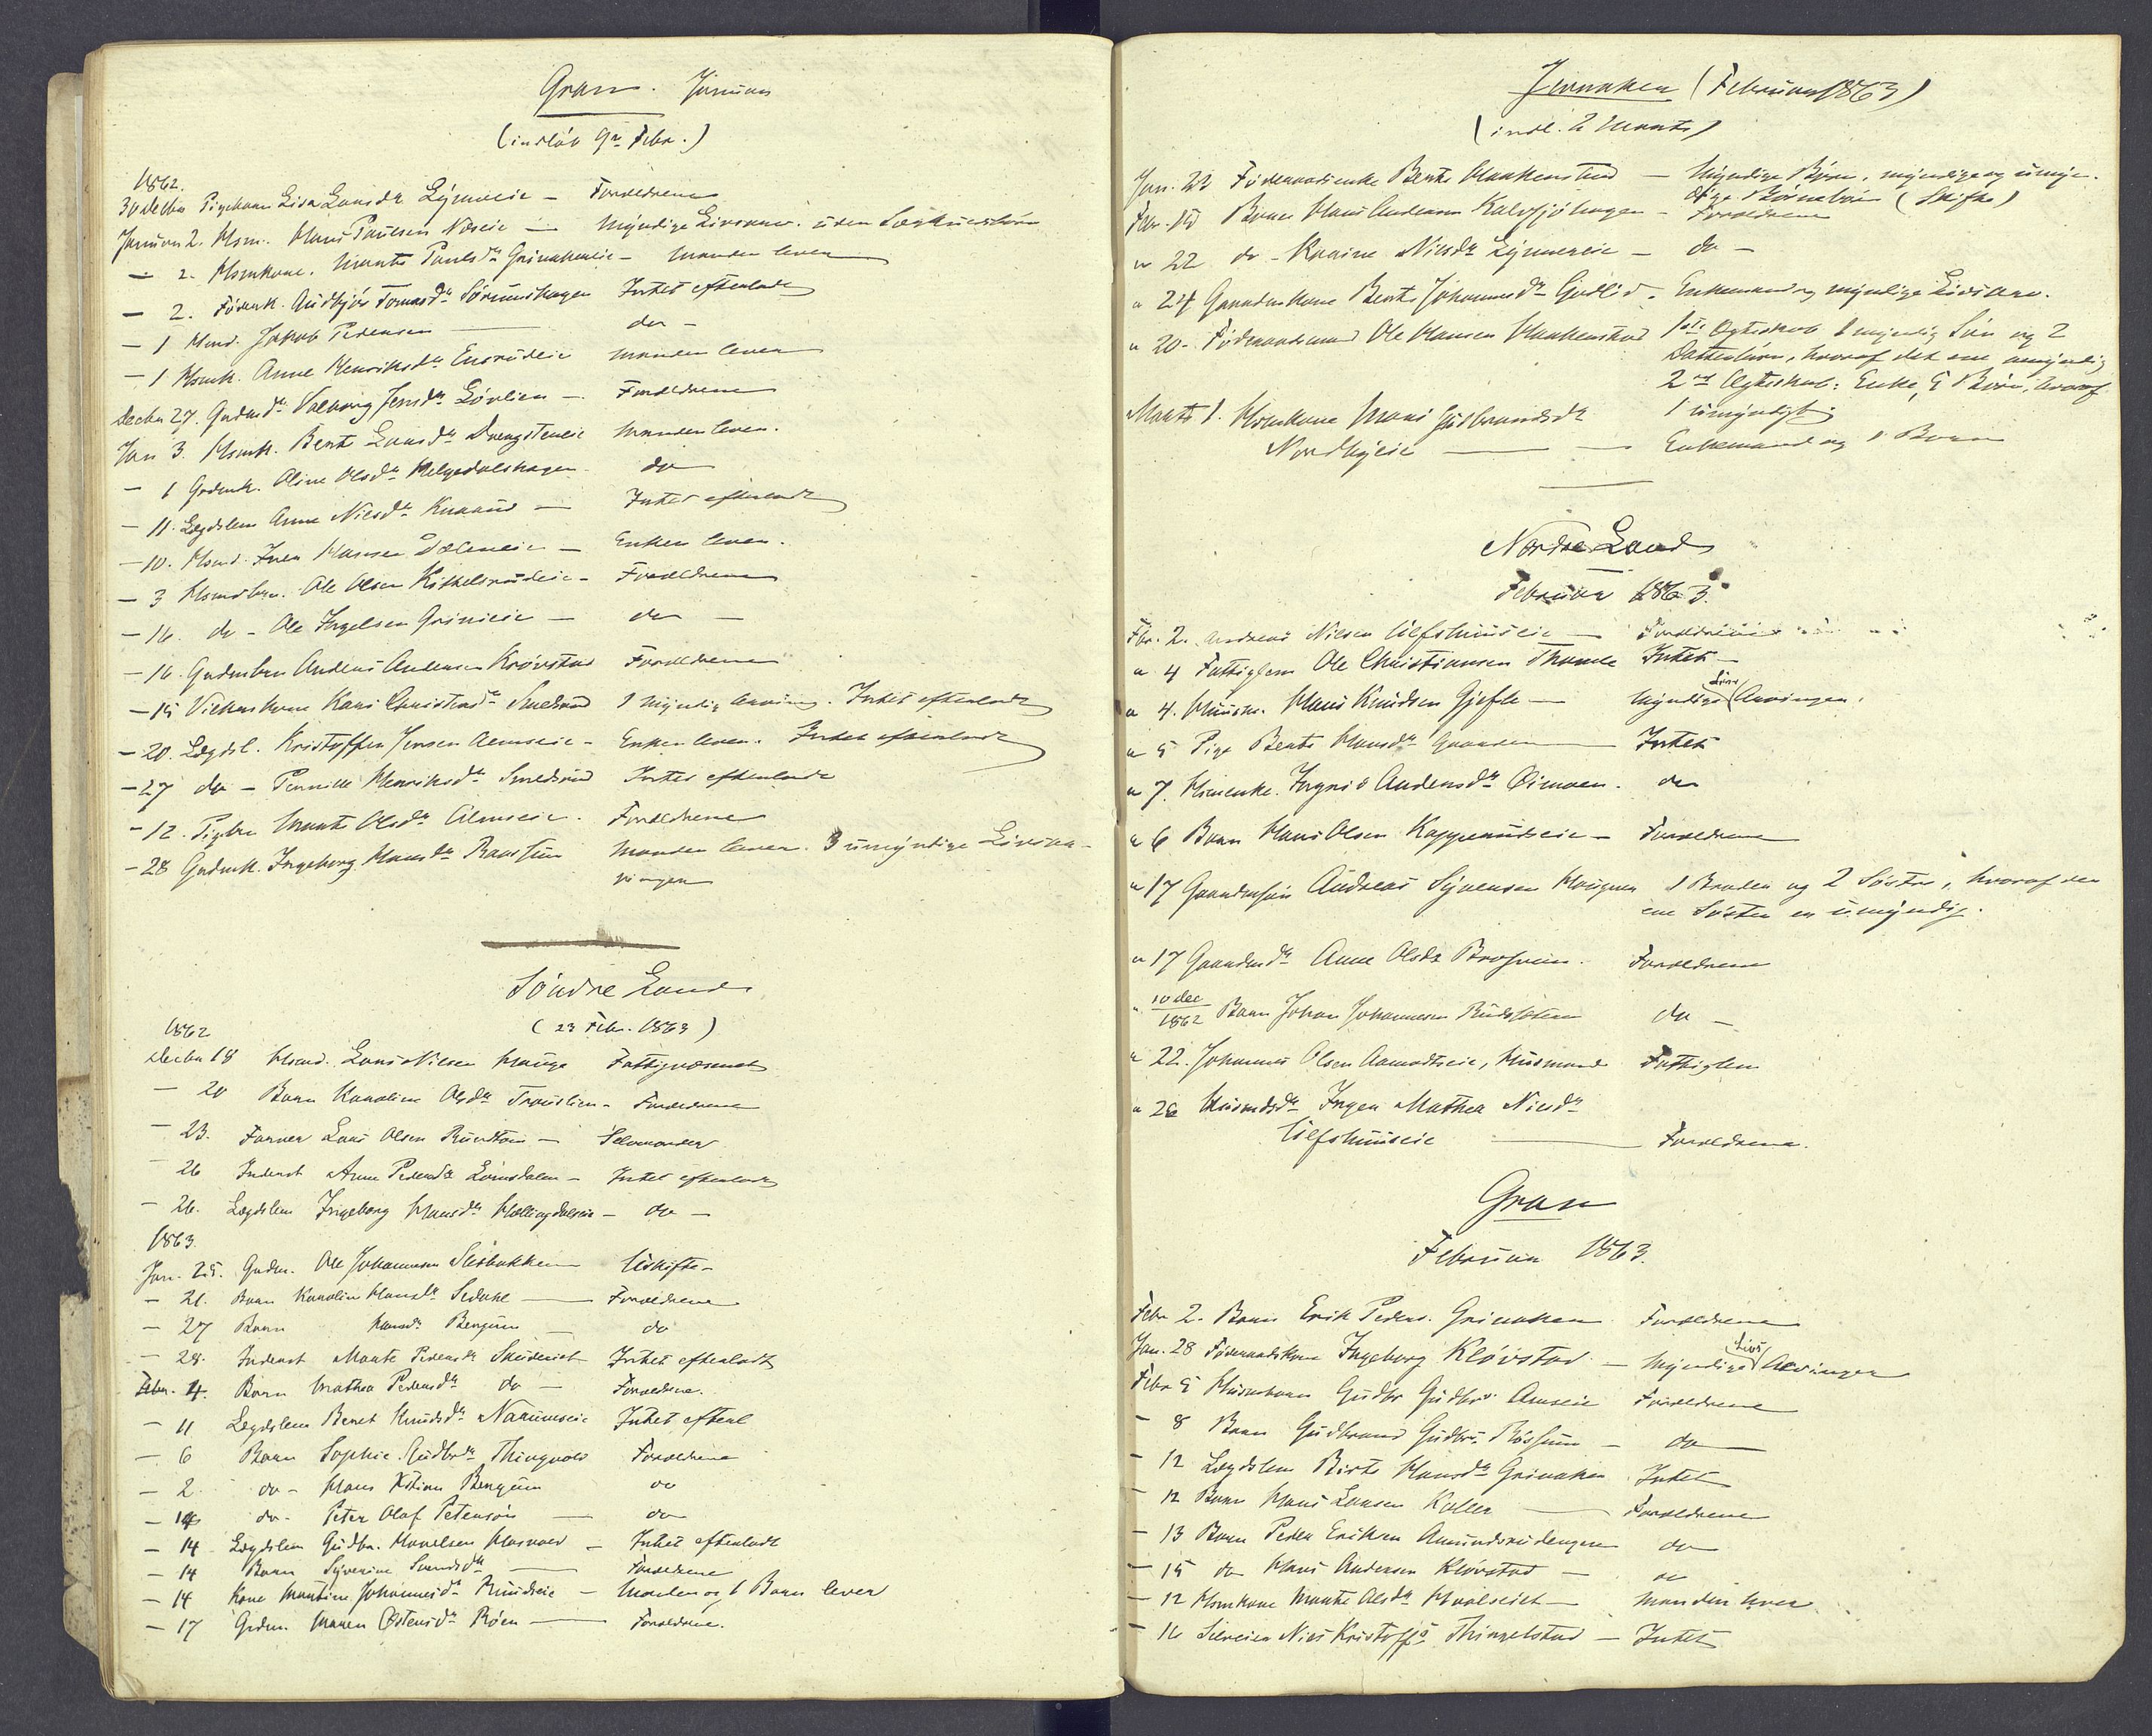 Gran. Januar
(indløb 9de Febr.)
1862.
30 Decbr Pigebarn Lisa Larsdr Lÿnneeie - Forældrene
Januar 2. Hsm. Hans Paulsen Næseie - Mÿndige Livsarv. uden Særkuldbørn
- 2. Hsmkone. Marte Paulsdr Grinakereie - Manden lever
- 2. Føderk. Gudbjør Tomasdr Sørumshagen Intet efterladt
- 1 Hsmd. Jakob Pedersen - do -
- 1 Hsmk. Anne Henriksdr Ensrudeie Manden lever
Decbr 27. Gudmdr Valborg Jensdr Lövlien - Forældrene
Jan 3. Hsmk. Berte Larsdr Drengsteneie Manden lever.
- 6 Gudmk. Oline Olsdr Helgedalshagen do
- 11. Lægdslem Anne Nilsdr Knarud - Intet efterladt
- 10. Hsmd. Iver Hansen Dæleneie - Enken lever.
- 3 Hsmdbrn. Ole Olsen Kittelsrudeie - Forældrene
- 16. do - Ole Ingelsen Grinieie - do -
- 16. Gudmbrn Anders Andersen Krövstad Forældrene
- 15 Kari Christensdr Smedsrud 1 Mÿndig Arving. Intet efterladt
- 20. Lægdsl. Kristoffer Jensen Almseie - Enken lever. Intet efterladt
- 27 do - Pernille Henriksdr Smedsrud Intet efterladt
- 12. Pigebn Marte Olsdr Almseie. Forældrene
- 28 Gudmk. Ingeborg Hansdr Raassum Manden lever. 3 umÿndige Livsar-
vinger
Söndre Land
(23 Febr. 1863)
1862
Decbr 18 Hsmd. Lars Nilsen Hauga Fattigvæsenet
- 20 Barn Karoline Olsdr Trauslien - Forældrene
- 23. Farver Lars Olsen Rundtom - Selvmorder
- 26 Inderst Anne Pedersdr Lomsdalen - Intet efterladt
- 26. Lægdslem Ingeborg Hansdr Hallingdalseie - do -
1863
Jan. 25. Gudm. Ole Johannesen Slåbakken Uskifte -
- 21. Barn Karoline Hansdr Sedahl - Forældrene
- 27 Barn Hansdr Bergum - do
- 28. Inderst Marte Pedersdr Skuderiet Intet efterladt
Febr. 4. Barn Mathea Pedersdr do - Forældrene.
- 11 Lægdslem Beret Knudsdr Narumseie Intet efterl
- 6 Barn Sophie Gudbrdr Thingvold Forældrene
- 2. do - Hans Kstian Bergum do
- 14 do - Peter Olaf Petersøn - do
- 14 Lægdslem Gudbr. Hovelsen Hasvold - Intet efterladt
- 14 Barn Syverine Svendsdr - Forældrene
- 14 Kone Martine Johannesdr Rundseie - Manden og 6 Børn lever
- 17 Gudm. Maren Østensdr Röen - Forældrene.
Jevnaker (Februar 1863)
(indl. 2 Marts)
Jan. 22 Føderaadsenke Berte Haakenstad - Mÿndige Børn, mÿndige og umÿn-
dige Børnebørn (Skifte)
Febr. 19 Barn Hans Andersen Kalvsjöhagen - Forældrene
" 22 do - Karine Nilsdr Lÿnnereie - do -
" 24 Gaardmkone Berte Johannesdr Gudlid. Enkemand og mÿndige Livsarv.
" 20 - Føderaadsmand Ole Hansen Haakenstad 1ste Ægteskab 1 mÿndig Søn og 2
Datterbørn, hvoraf det ene umÿndig
2det Ægteskab: Enke, 5 Børn, hvoraf
1 umÿndigt
Marts 1. Hsmkone Mari Gudbrandsdr
Nordbÿeie - Enkemand og 1 Barn
Nordre Land
Februar 1863.
Fbr. 2. Andreas Nilsen Ulfshuuseie - Forældrene
" 4 Fattiglem Ole Christiansen Thomle Intet -
" 4. Huusm. Hans Knudsen Gjefle - Mÿndige Livs Arvinger.
" 5 Pige Berte Hansdr Gaarder Intet
" 7. Hsmenke. Ingrid Andersdr Öimoen. do
" 6 Barn Hans Olsen Kopperudseie - Forældrene
" 17 Gaardmsøn Andreas Sÿversen Haugner 1 Broder og 2 Søstre, hvoraf den
ene Søster er umÿndig.
" 17 Gaardmdr Anne Olsdr Brofsum. Forældrene
" 10 dec 1862 Barn Johan Johannesen Rudsloten do -
" 22. Johannes Olsen Aamodtseie, Husmand Fattiglem
" 26 Huusmdsdr Inger Mathea Nilsdr
Ulfshuuseie - Forældrene.
Gran
Februar 1863.
Febr 2. Barn Erik Peders. Grinaker Forældrene
Jan. 28 Føderaadskone Ingeborg Klövstad - Mÿndige Livs Arvinger
Febr 5 Husmbarn Gudbr Gudbrs. Amseie Forældrene
- 8 Barn Gudbrand Gudbrs. Råssum - do
- 12 Lægdslem Birte Hansdr Grinaker Intet
- 12 Barn Hans Larsen Koller - Forældrene
- 13 Barn Peder Eriksen Amundsrudengen do
- 15 do Hans Andersen Klövstad - do
- 12 Hsmkone Marte Olsdr Hvalseiet - Manden lever
- 16 Nils Kristoffs. Thingelstad - Intet